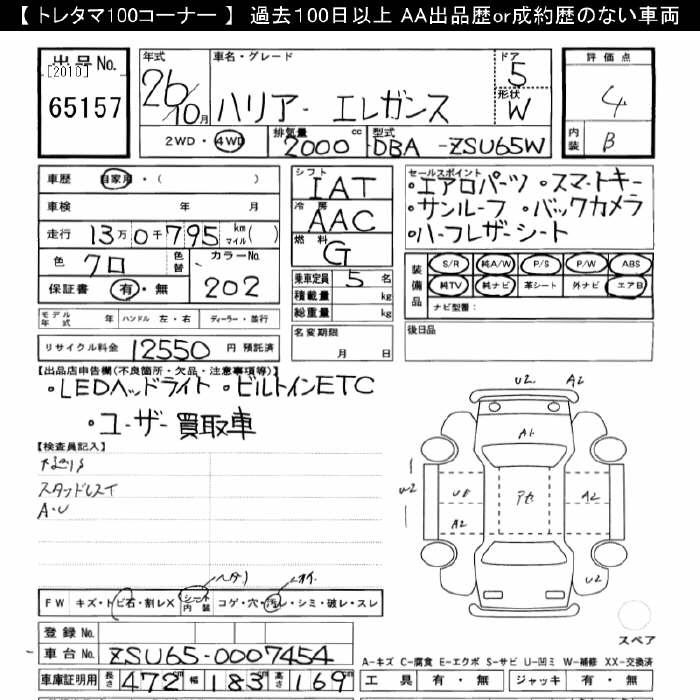 【 トレタマ100コーナー 】 過去100日以上 AA出品歴or成約歴のない車両
出品No.
[2010]
65157
年式
26/10月
車名・グレード
ハリアー エレガンス
ドア
5
形状
W
評価点
4
内装
B
2WD・4WD
排気量
2000 cc
型式
DBA-ZSU65W
車歴 自家用・( )
車検 年 月
走行 13万0千795 km マイル ( )
色 クロ 色替 カラーNo. 202
保証書 有・無
シフト IAT
冷房 AAC
燃料 G
乗車定員 5 名
積載量 kg
総重量 kg
名変期限
月 日
セールスポイント
・エアロパーツ ・スマートキー
・サンルーフ ・バックカメラ
・ハーフレザーシート
装備品
S/R 純A/W P/S P/W ABS
純TV 純ナビ 革シート 外ナビ エアB
ナビ型番:
後日品
モデル年式 年 ハンドル 左・右 ディーラー・並行
リサイクル料金 12550 円 預託済
【出品店申告欄(不良箇所・欠品・注意事項等)】
・LEDヘッドライト ・ビルトインETC
・ユーザー買取車
【検査員記入】
スタッドレスイ
A・U
U2 A2
A1
U2
A2
A2
U2
FW キズ・トビ石・割レX シート内装 コゲ・穴・汚レ・シミ・破レ・スレ
登録No.
車台No. ZSU65-0007454
車庫証明用 長さ 472 幅 183 高さ 169 cm
スペア
A-キズ C-腐食 E-エクボ S-サビ U-凹ミ W-補修 XX-交換済
工具 有・無 ジャッキ 有・無